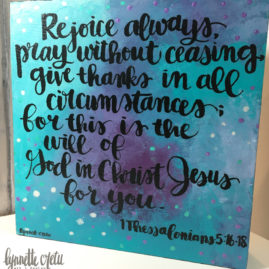 Rejoice always,
pray without ceasing,
give thanks in all
circumstances;
for this is the
will of
God in Christ Jesus
for you.
1 Thessalonians 5:16-18
lynnette